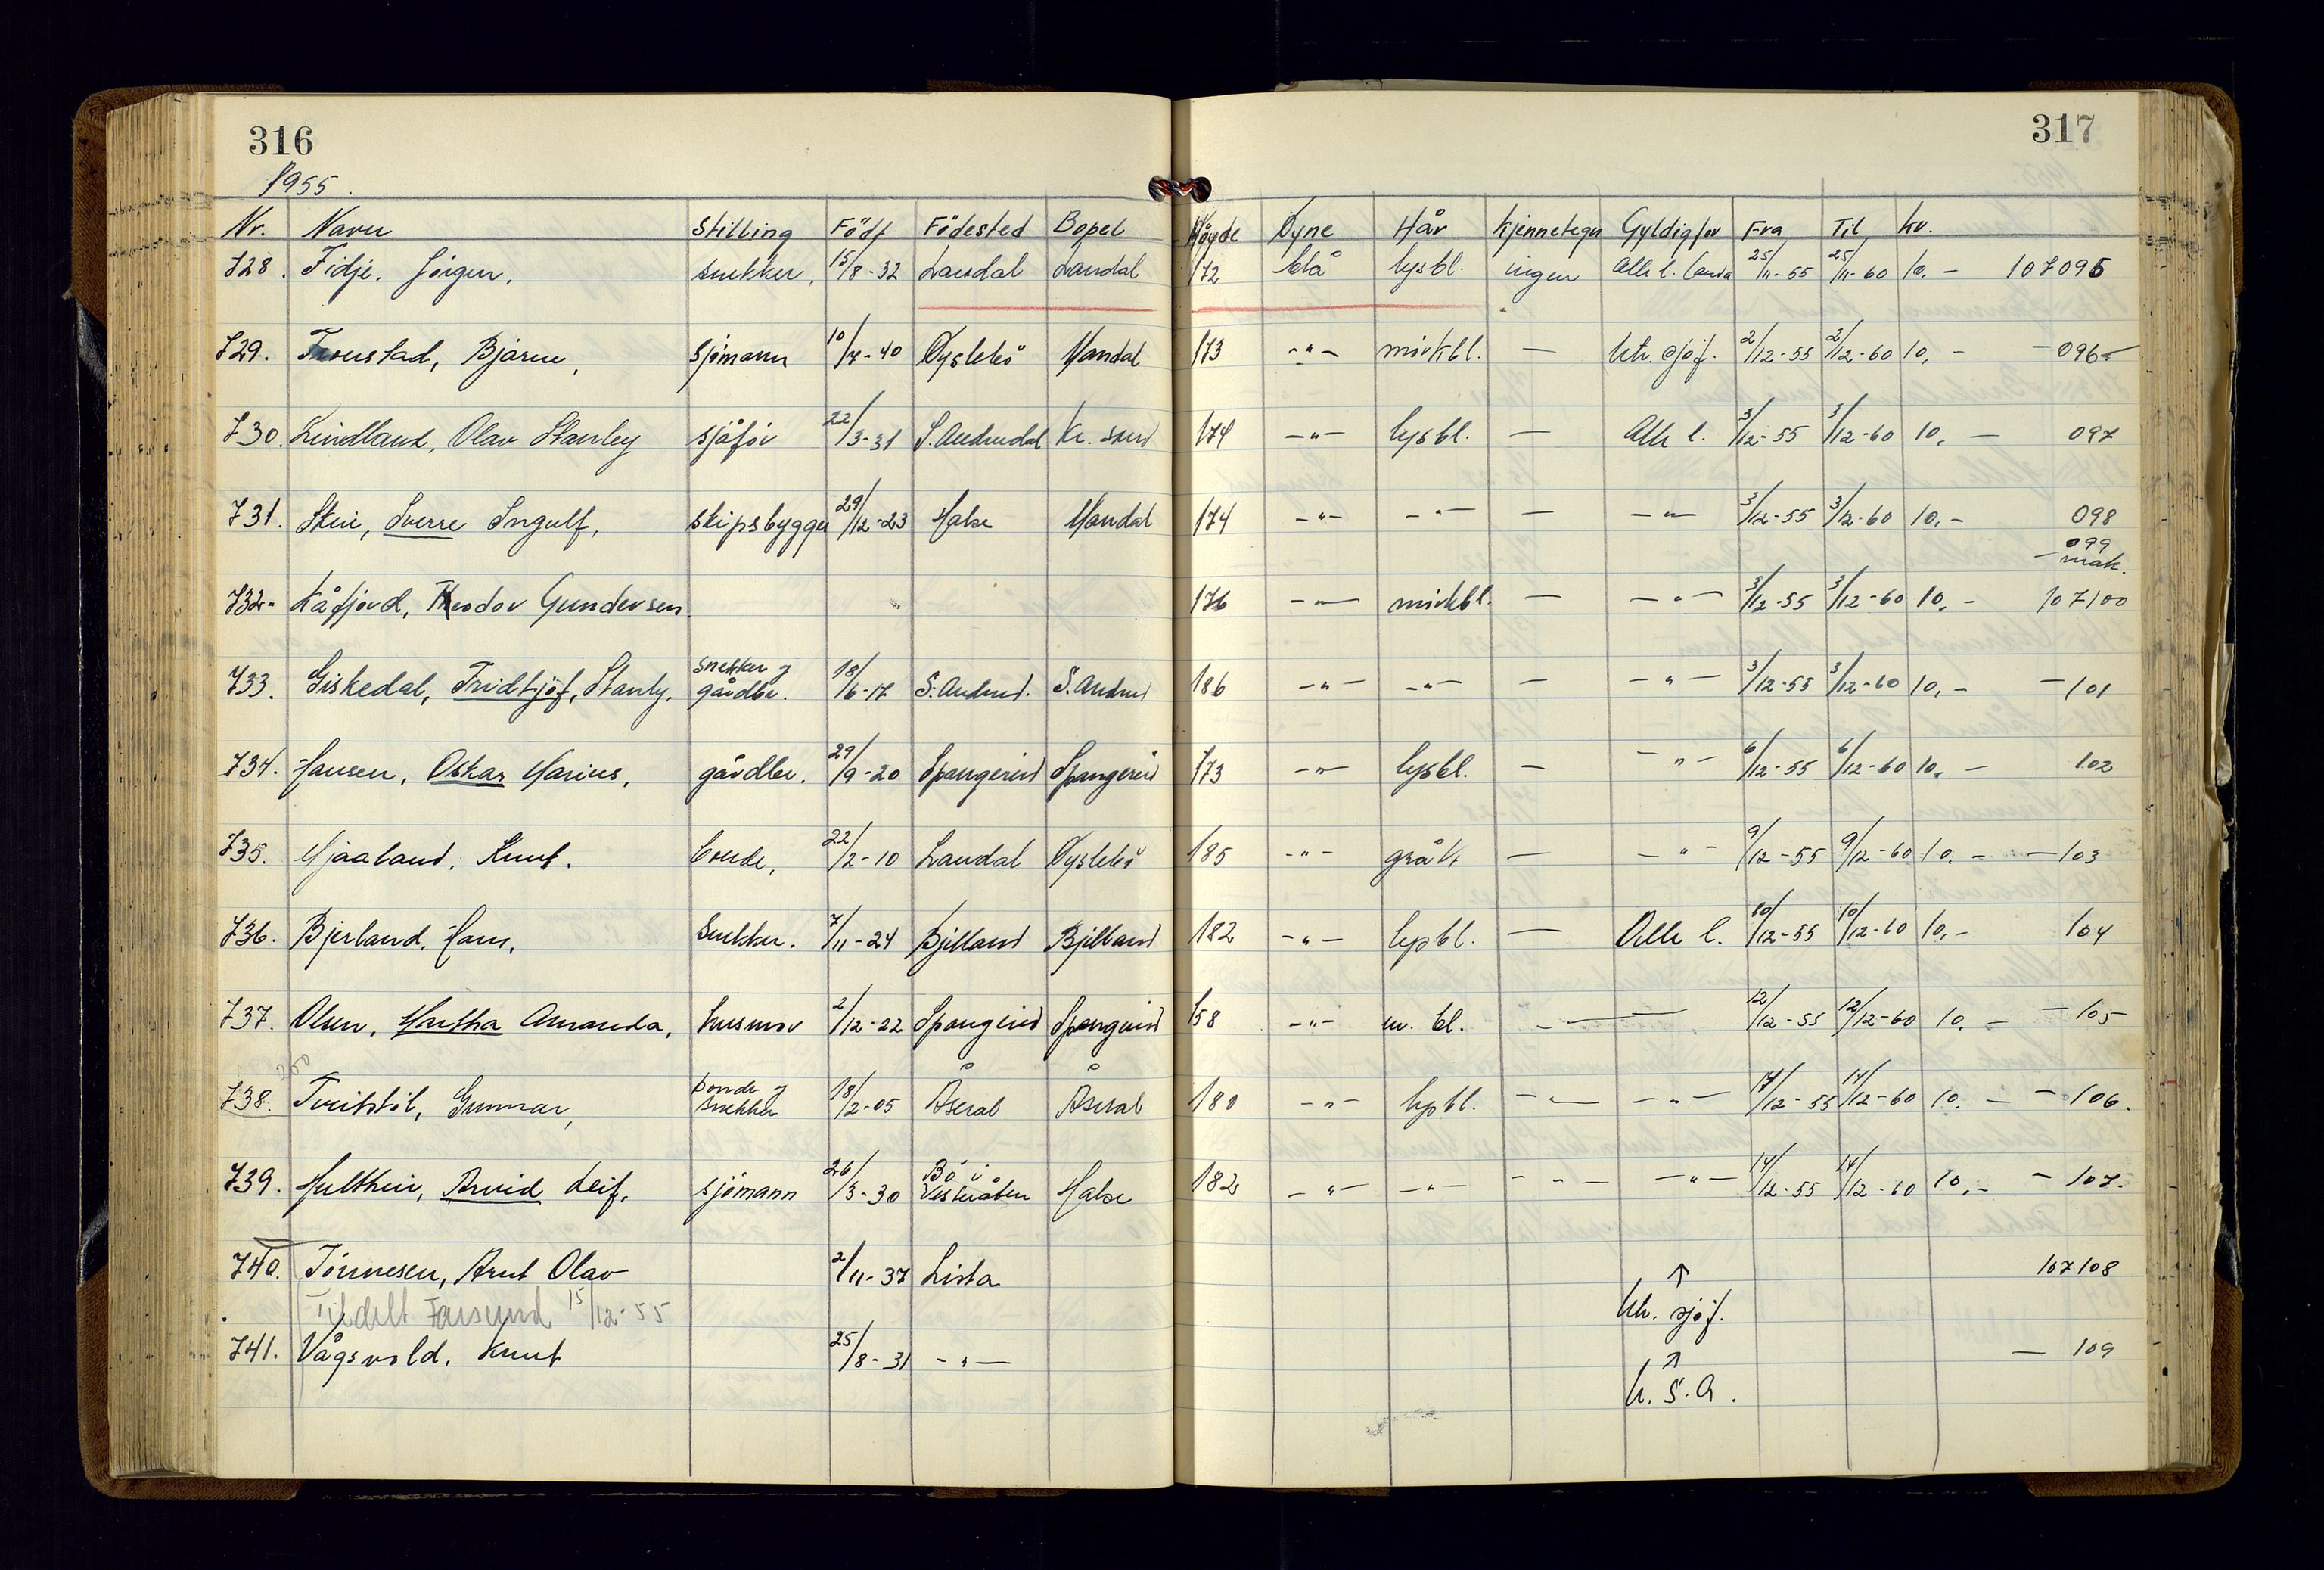 316
317
1955.
Nr. Navn Stilling Född Födested Bopel Höyde Öyne Hår Kjennetegn Gyldig for Fra Til Kr.
728. Fidje, Jörgen, snekker, 15/8-32 Laudal Laudal 172 blå lysbl. ingen Alle l. landa 25/11-55 25/11-60 10,- 107095
729. Tronstad, Bjarne, sjömann 10/7-40 Öyslebö Mandal 173 -"- mörkbl. - utr. sjöf. 2/12-55 2/12-60 10,- - 096-
730. Lindland, Olav Stanley sjåför 22/3-31 S. Audnedal Kr. sand 174 -"- lysbl. - Alle l. 3/12-55 3/12-60 10,- 097
731. Stui, Sverre Ingulf, skipsbygger 29/12-23 Halse Mandal 174 -"- -"- - -"- 3/12-55 3/12-60 10,- 098
099
- mak.
732. Kåfjord, Theodor Gundersen. 176 -"- mörkbl. - -"- 3/12-55 3/12-60 10,- 107100
733. Giskedal, Fridtjof, Stanly, snekker og gårdbr. 18/6-17 S. Audned. S. Audned 186 -"- -"- - -"- 3/12-55 3/12-60 10,- - 101
734. Hansen, Oskar Marius, gårdbr. 29/9-20 Spangereid Spangereid 173 -"- lysbl. - -"- 6/12-55 6/12-60 10,- 102
735. Mjaaland, Knut. bonde, 22/2-10 Laudal Öyslebö 185 -"- grått - -"- 9/12-55 9/12-60 10,- - 103
736. Bjerland, Hans, Snekker. 7/11-24 Bjelland Bjelland 182 -"- lysbl. - Alle l. 10/12-55 10/12-60 10,- 104
737. Olsen, Martha Amanda, husmor 2/12-22 Spangereid Spangereid 158 -"- m. bl. - - 12/12-55 12/12-60 10,- - 105
250
738. Tveitstöl, Gunnar, bonde og snekker 18/2-05 Åseral Åseral 180 -"- lysbl. -"- -"- 14/12-55 14/12-60 10,- - 106.
739. Hulthein, Arvid Leif, sjömann 26/3-30 Bö i Vesterålen Halse 182 -"- -"- -"- -"- 14/12-55 14/12-60 10,- - 107.
740. Tönnesen, Arnt Olav 2/11-37 Lista 107108
Tildelt Farsund 15/12-55 ↑ utr. sjöf.
741. Vågsvold, Knut 25/8-31 -"- - 109
↑ U.S.A.